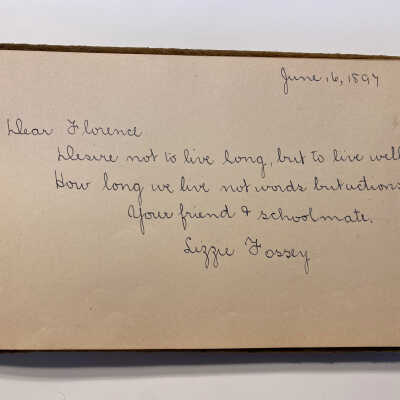 June 16, 1897
Dear Florence
Desire not to live long, but to live well
How long we live not words but actions
Your friend & schoolmate.
Lizzie Fossey